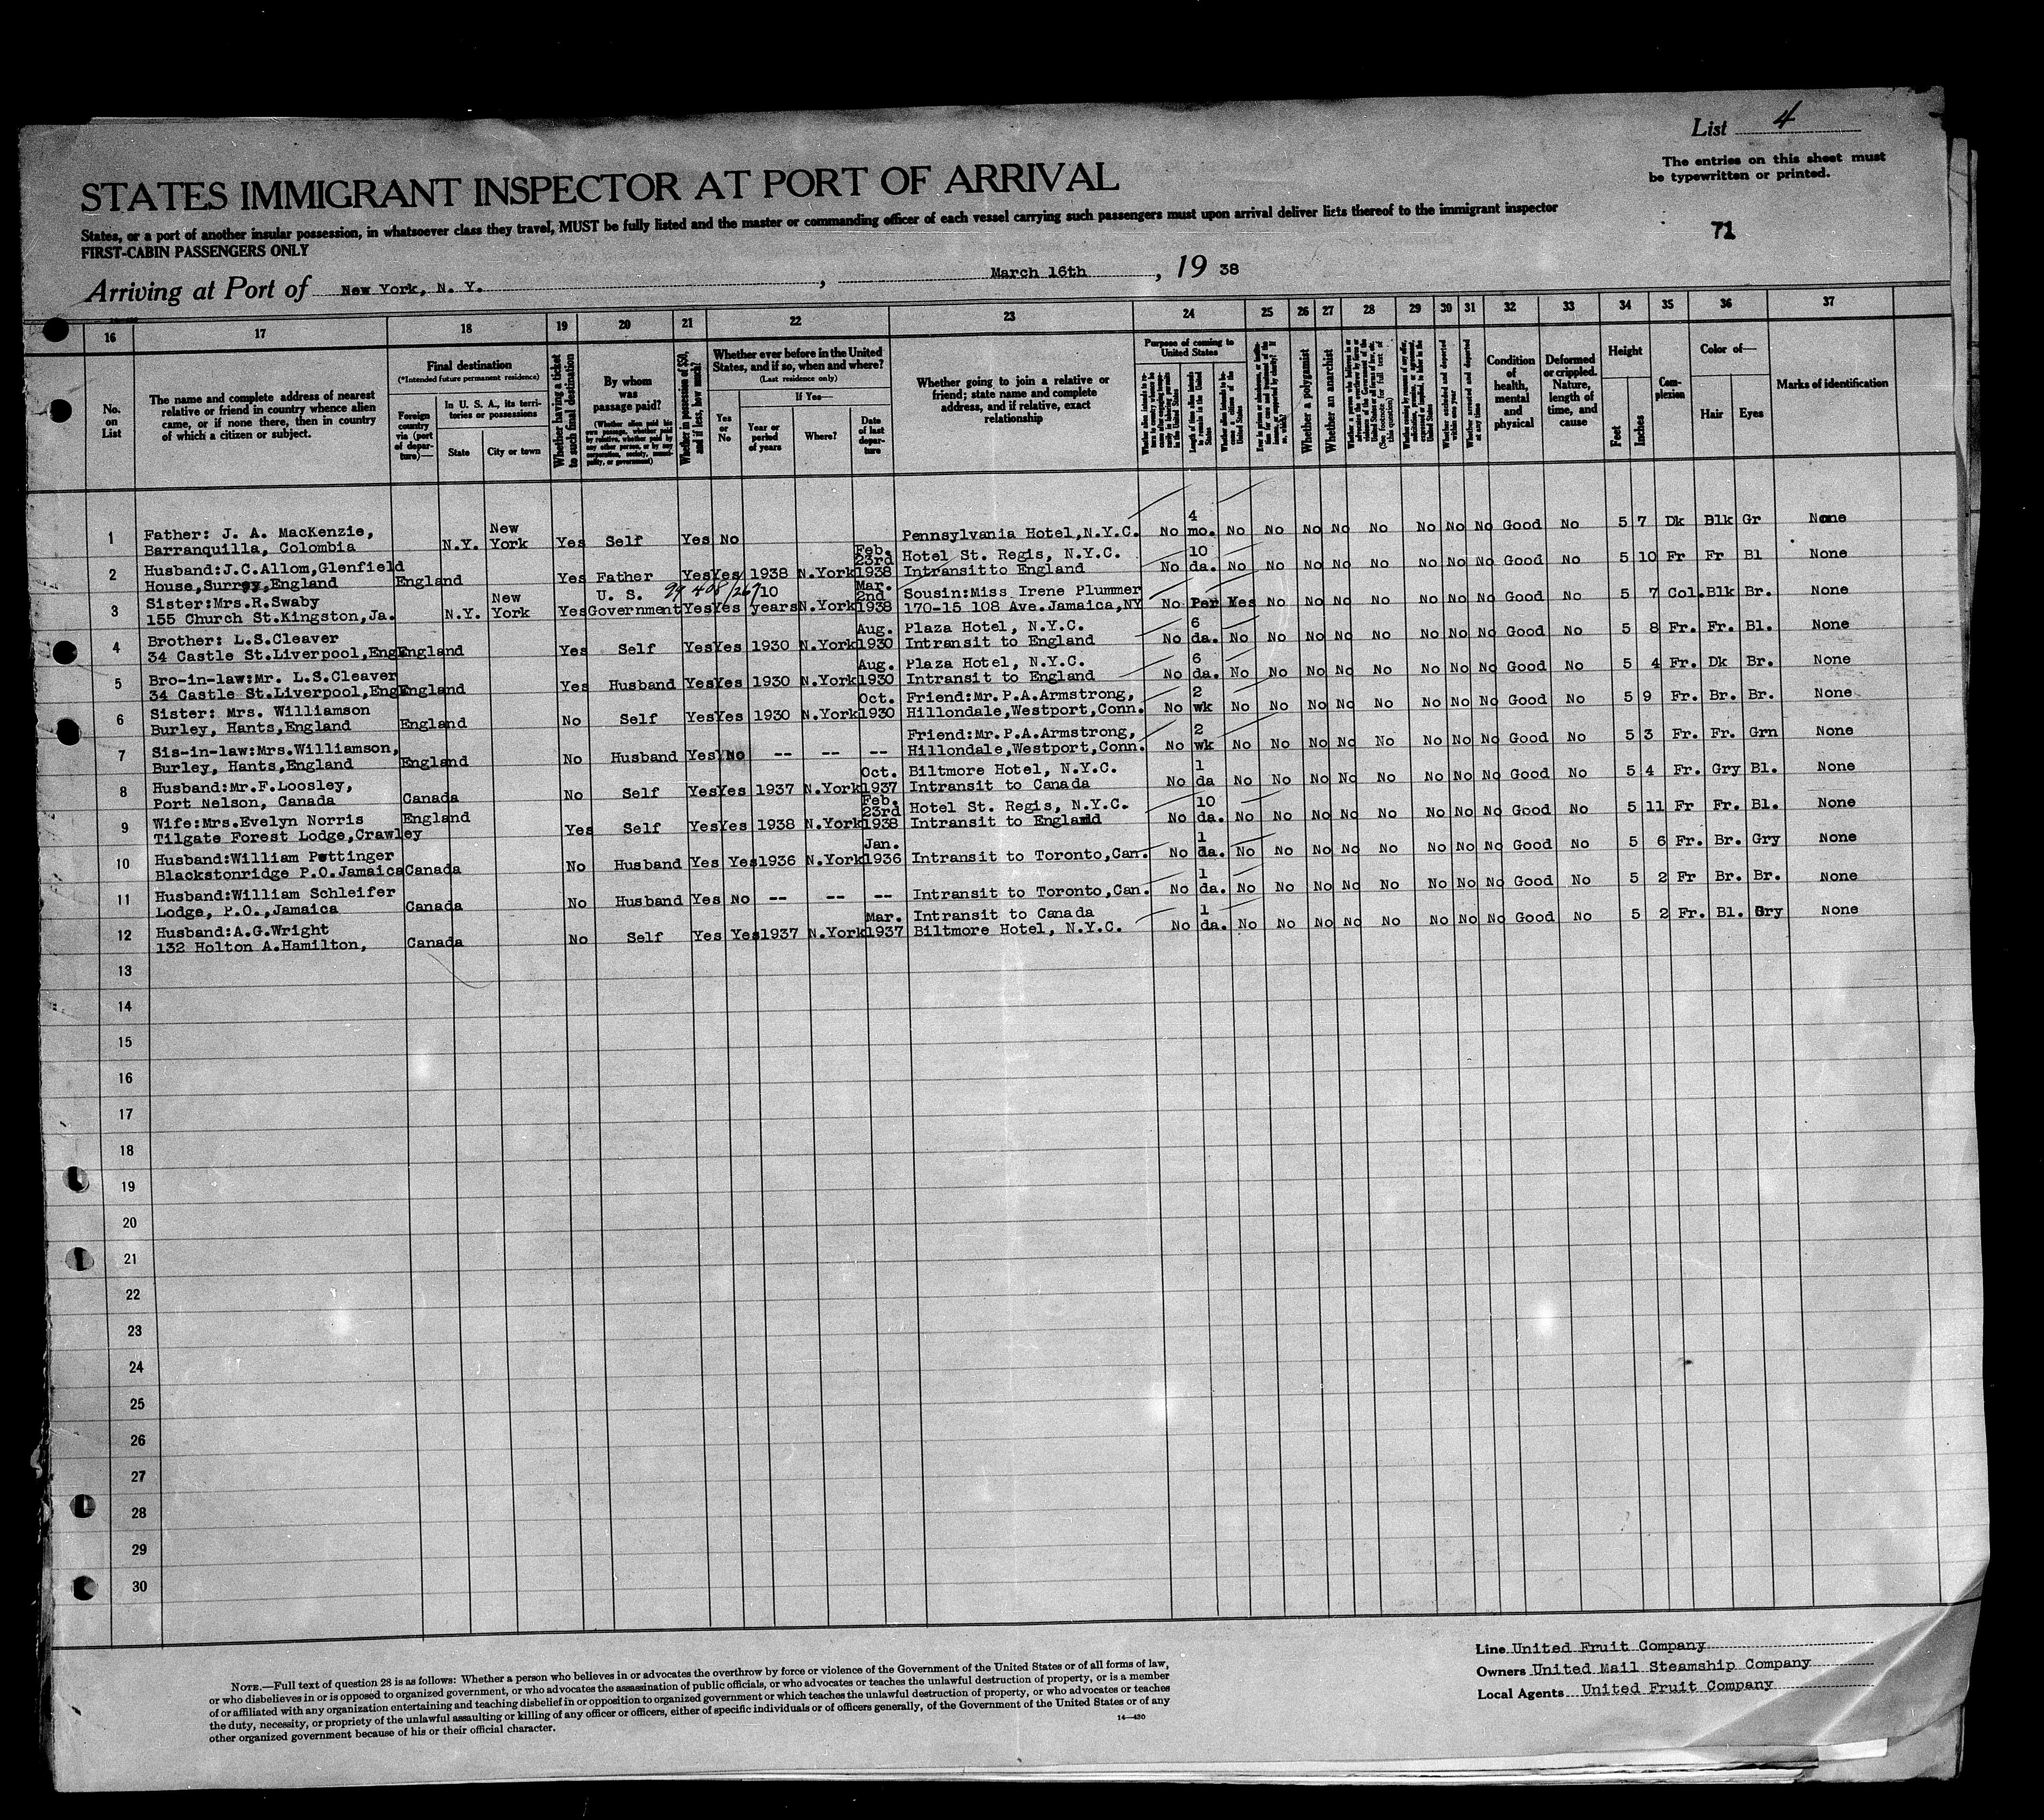 List 4
The entries on this sheet must
be typewritten or printed.
STATES IMMIGRANT INSPECTOR AT PORT OF ARRIVAL
States, or a port of another insular possession, in whatsoever class they travel, MUST be fully listed and the master or commanding officer of each vessel carrying such passengers must upon arrival deliver lists thereof to the immigrant inspector
FIRST-CABIN PASSENGERS ONLY
71
Arriving at Port of New York, N. Y. , March 16th , 19 38
16 17 18 19 20 21 22 23 24 25 26 27 28 29 30 31 32 33 34 35 36 37
No.
on
List
The name and complete address of nearest
relative or friend in country whence alien
came, or if none there, then in country
of which a citizen or subject.
Final destination
(*Intended future permanent residence)
Foreign
country
via (port
of depar-
ture)—
In U. S. A., its terri-
tories or possessions
State
City or town
Whether having a ticket
to such final destination
By whom
was
passage paid?
(Whether alien paid his
own passage, whether paid
by relative, whether paid by
any other person, or by any
corporation, society, munici-
pality, or government)
Whether in possession of $50,
and if less, how much?
Whether ever before in the United
States, and if so, when and where?
(Last residence only)
Yes
or
No
If Yes—
Year or
period
of years
Where?
Date
of last
depar-
ture
Whether going to join a relative or
friend; state name and complete
address, and if relative, exact
relationship
Purpose of coming to
United States
Length of time alien intends
to remain in the United
States
Whether alien intends to be-
come a citizen of the
United States
Whether a polygamist
Whether an anarchist
(See footnote for full text of
this question)
Whether arrested and deported
at any time
Condition
of
health,
mental
and
physical
Deformed
or crippled.
Nature,
length of
time, and
cause
Height
Feet
Inches
Com-
plexion
Color of—
Hair
Eyes
Marks of identification
1 Father: J. A. MacKenzie,
Barranquilla, Colombia N.Y. New
York Yes Self Yes No Pennsylvania Hotel,N.Y.C. No 4
mo. No No No No No No No No Good No 5 7 Dk Blk Gr None
2 Husband:J.C.Allom,Glenfield
House,Surrey,England England Yes Father Yes Yes 1938 N.York Feb.
23rd
1938 Hotel St. Regis, N.Y.C.
Intransit to England No 10
da. No No No No No No No No Good No 5 10 Fr Fr Bl None
3 Sister:Mrs.R.Swaby
155 Church St.Kingston,Ja. N.Y. New
York Yes U. S.
Government Yes Yes 10
years N.York Mar.
2nd
1938 Sousin:Miss Irene Plummer
170-15 108 Ave.Jamaica,NY No Per Yes No No No No No No No Good No 5 7 Col. Blk Br. None
4 Brother: L.S.Cleaver
34 Castle St.Liverpool,Eng England Yes Self Yes Yes 1930 N.York Aug.
1930 Plaza Hotel, N.Y.C.
Intransit to England No 6
da. No No No No No No No No Good No 5 8 Fr. Fr. Bl. None
5 Bro-in-law:Mr. L.S.Cleaver
34 Castle St.Liverpool,Eng England Yes Husband Yes Yes 1930 N.York Aug.
1930 Plaza Hotel, N.Y.C.
Intransit to England No 6
da. No No No No No No No No Good No 5 4 Fr. Dk Br. None
6 Sister: Mrs. Williamson
Burley, Hants,England England No Self Yes Yes 1930 N.York Oct.
1930 Friend:Mr.P.A.Armstrong,
Hillondale,Westport,Conn. No 2
wk No No No No No No No No Good No 5 9 Fr. Br. Br. None
7 Sis-in-law:Mrs.Williamson,
Burley, Hants,England England No Husband Yes No -- -- -- Friend:Mr.P.A.Armstrong,
Hillondale,Westport,Conn. No 2
wk No No No No No No No No Good No 5 3 Fr. Fr. Grn None
8 Husband:Mr.F.Loosley,
Port Nelson, Canada Canada No Self Yes Yes 1937 N.York Oct.
1937 Biltmore Hotel, N.Y.C.
Intransit to Canada No 1
da No No No No No No No No Good No 5 4 Fr. Gry Bl. None
9 Wife:Mrs.Evelyn Norris
Tilgate Forest Lodge,Crawley England Yes Self Yes Yes 1938 N.York Feb.
23rd
1938 Hotel St. Regis, N.Y.C.
Intransit to England No 10
da. No No No No No No No No Good No 5 11 Fr Fr. Bl. None
10 Husband:William Pottinger
Blackstonridge P.O.Jamaica Canada No Husband Yes Yes 1936 N.York Jan.
1936 Intransit to Toronto,Can. No 1
da. No No No No No No No No Good No 5 6 Fr. Br. Gry None
11 Husband:William Schleifer
Lodge, P.O.,Jamaica Canada No Husband Yes No -- -- -- Intransit to Toronto,Can. No 1
da. No No No No No No No No Good No 5 2 Fr Br. Br. None
12 Husband:A.G.Wright
132 Holton A.Hamilton, Canada No Self Yes Yes 1937 N.York Mar.
1937 Intransit to Canada
Biltmore Hotel, N.Y.C. No 1
da. No No No No No No No No Good No 5 2 Fr. Bl. Gry None
13
14
15
16
17
18
19
20
21
22
23
24
25
26
27
28
29
30
NOTE.—Full text of question 28 is as follows: Whether a person who believes in or advocates the overthrow by force or violence of the Government of the United States or of all forms of law,
or who disbelieves in or is opposed to organized government, or who advocates the assassination of public officials, or who advocates or teaches the unlawful destruction of property, or is a member
of or affiliated with any organization entertaining and teaching disbelief in or opposition to organized government or which teaches the unlawful destruction of property, or who advocates or teaches
the duty, necessity, or propriety of the unlawful assaulting or killing of any officer or officers, either of specific individuals or of officers generally, of the Government of the United States or of any
other organized government because of his or their official character.
14—430
Line United Fruit Company
Owners United Mail Steamship Company
Local Agents United Fruit Company